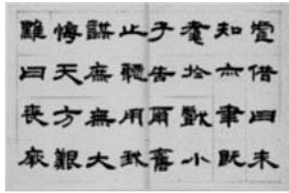 虐借曰未
知亦聿既
耄於戲小
子告爾舊
止聽用我
謀庶無大
悔天方艱
難曰喪厥